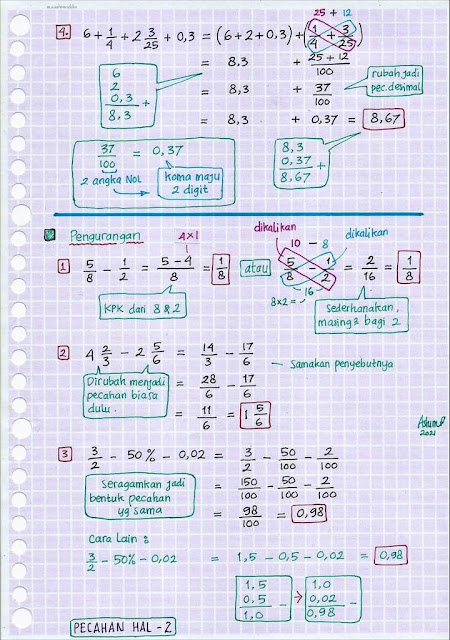 25 + 12
4. 6 + 1/4 + 2 3/25 + 0,3 = (6+2+0,3) + (1/4 + 3/25)
= 8,3 + 25 + 12/100
6
2
0,3 +
8,3
= 8,3 + 37/100
rubah jadi
pec. desimal
= 8,3 + 0,37 = 8,67
37/100 = 0,37
2 angka NOL
Koma maju
2 digit
8,3
0,37 +
8,67
Pengurangan
4x1
dikalikan
10 - 8
dikalikan
1 5/8 - 1/2 = 5-4/8 = 1/8 atau 5/8 - 1/2 = 2/16 = 1/8
16
8x2 =
KPK dari 8 & 2
Sederhanakan,
masing2 bagi 2
2 4 2/3 - 2 5/6 = 14/3 - 17/6
Samakan penyebutnya
Dirubah menjadi
pecahan biasa
dulu.
= 28/6 - 17/6
= 11/6 = 1 5/6
2021
3 3/2 - 50% - 0,02 = 3/2 - 50/100 - 2/100
Seragamkan jadi
bentuk pecahan
yg sama
= 150/100 - 50/100 - 2/100
= 98/100 = 0,98
Cara Lain :
3/2 - 50% - 0,02 = 1,5 - 0,5 - 0,02 = 0,98
1,5
0,5 -
1,0
1,0
0,02 -
0,98
PECAHAN HAL - 2